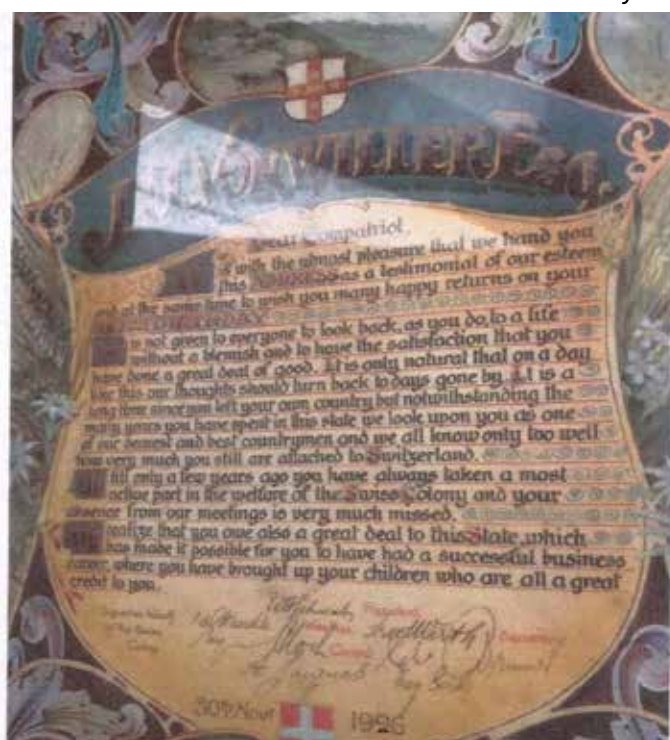 SHWILLER, Esq.
Dear Compatriot,
is with the utmost pleasure that we hand you
this as a testimonial of our esteem
and at the same time to wish you many happy returns on your
is not given to everyone to look back, as you do, to a life
without a blemish and to have the satisfaction that you
have done a great deal of good. It is only natural that on a day
like this our thoughts should turn back to days gone by. It is a
long time since you left your own country but notwithstanding the
many years you have spent in this state we look upon you as one
of our dearest and best countrymen and we all know only too well
how very much you still are attached to Switzerland.
Till only a few years ago you have always taken a most
active part in the welfare of the Swiss Colony and your
absence from our meetings is very much missed.
We realize that you owe also a great deal to this State, which
has made it possible for you to have had a successful business
career, where you have brought up your children who are all a great
credit to you.
President
30th Nov 1926